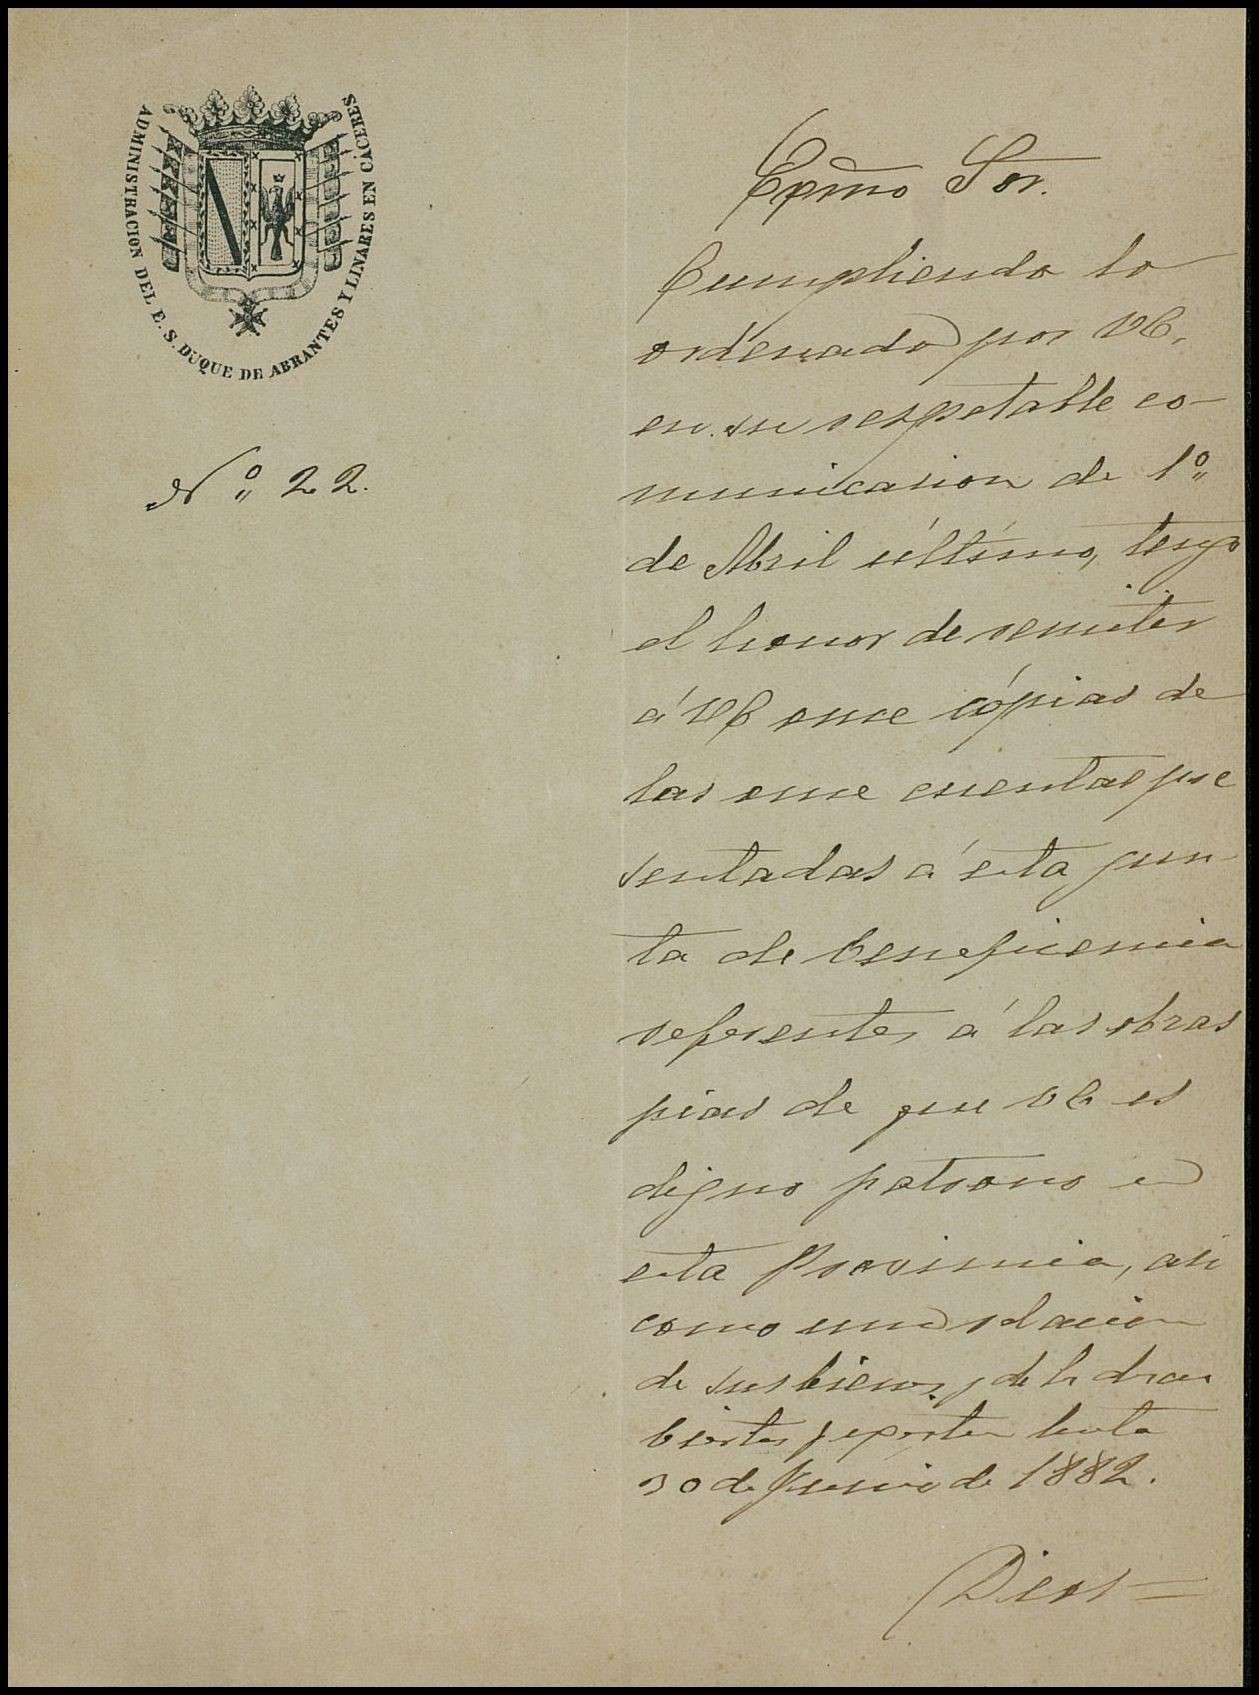 ADMINISTRACION DEL E. S. DUQUE DE ABRANTES Y LINARES EN CÁCERES
Nº 22.
Exmo Sor.
Cumpliendo lo
ordenado por VE.
en su respetable co-
municasion de 1º
de Abril último, tengo
el honor de remitir
á VE once cópias de
las once cuentas pre
sentadas á esta Jun-
ta de beneficencia
referentes á las obras
pias de que VE es
digno patrono en
esta Provincia, asi
como una relacion
de sus bienes y de lo
hasta
30 de Junio de 1882.
Dios